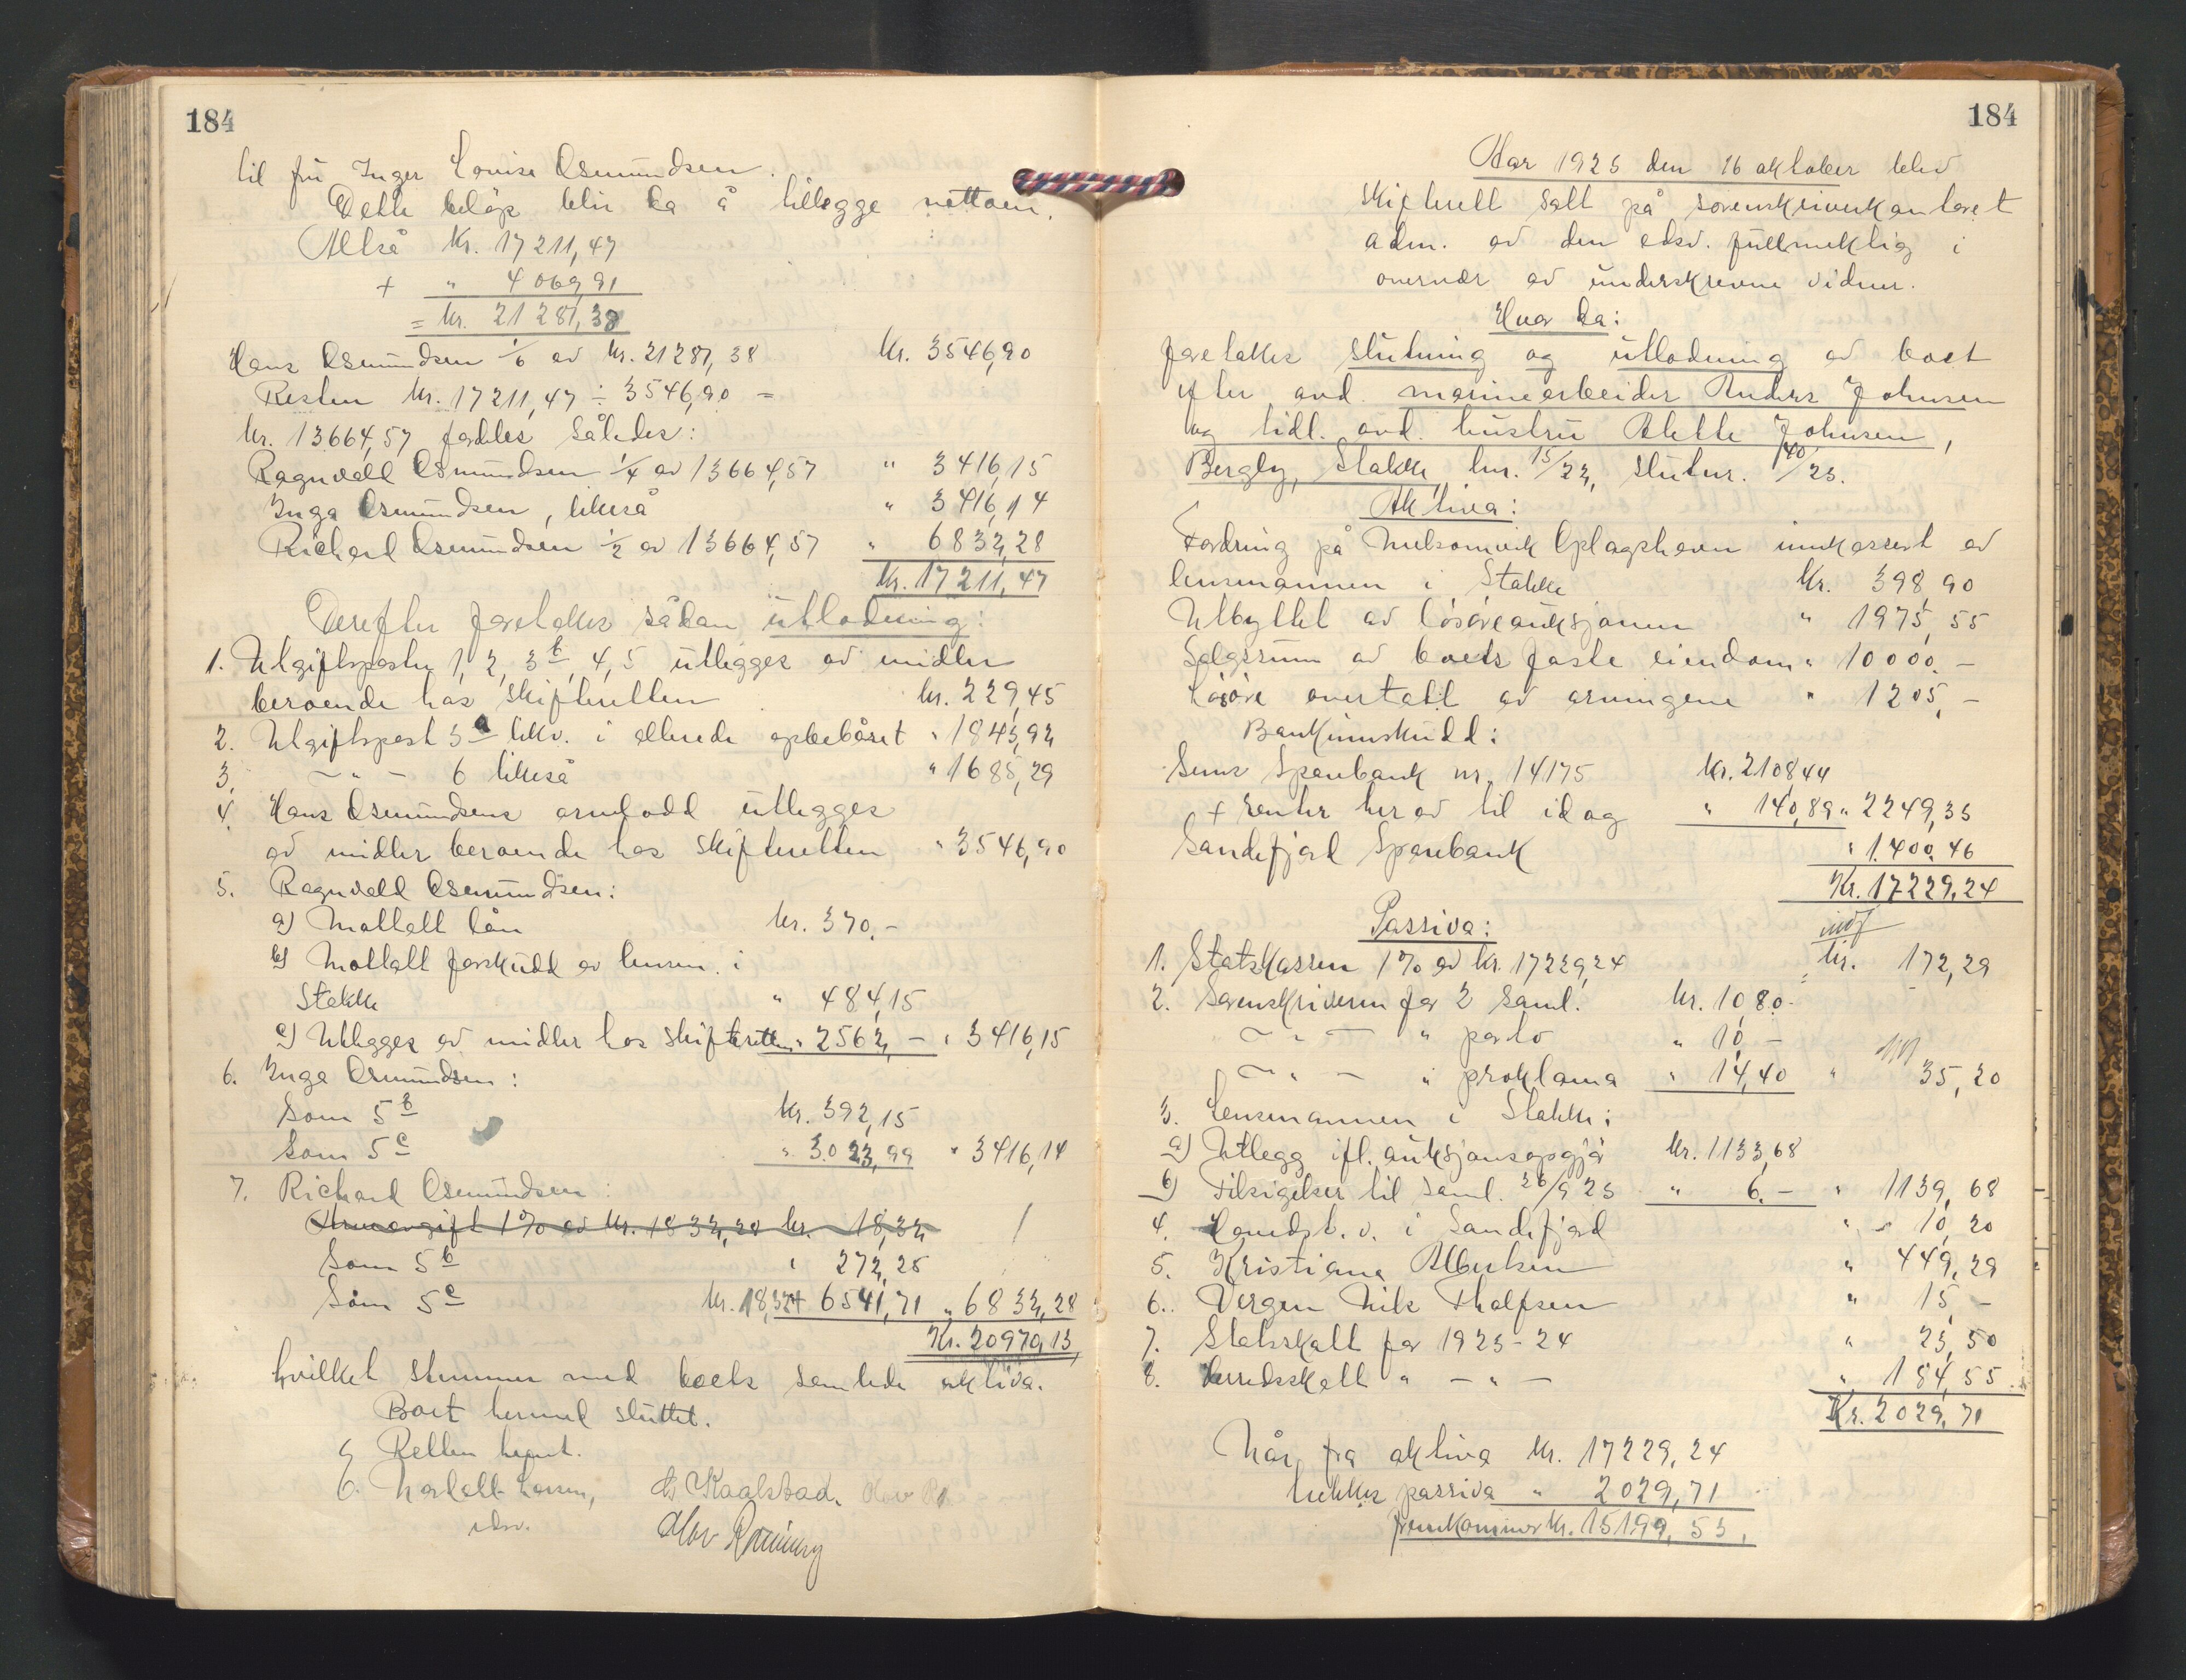 184
til fru Inger Lovise Osmundsen.
Dette beløp blir da å tillegge nettoen.
Altså Kr. 17211,47
+ " 4069,91
= kr. 21281,38
Hans Osmundsen 1/6 av kr. 21281,38 kr. 3546,90
Resten kr. 17211,47 ÷ 3546,90 =
kr. 13664,57 fordeles således:
Ragnvald Osmundsen 1/4 av 13664,57 " 3416,15
Inga Osmundsen, likeså " 3416,14
Richard Osmundsen 1/2 av 13664,57 " 6832,28
Kr. 17211,47
Derefter foretokes sådan utlodning:
1. Utgiftsposter 1, 2, 3b, 4, 5 utlegges av midler
beroende hos skifteretten kr. 229,45
2. Utgiftspost 3a likv. i allerede opbebåret " 1843,92
3. - " - 6 likeså " 1685,29
4. Hans Osmundsens arvelodd utlegges
av midler beroende hos skifteretten " 3546,90
5. Ragnvald Osmundsen:
a) Mottatt lån kr. 370.-
b) Mottatt forskudd av lensm. i
Stokke " 484,15
c) Utlegges av midler hos skifteretten " 2562,- " 3416,15
6. Inga Osmundsen:
Som 5b kr. 392,15
Som 5c " 3023,99 " 3416,14
7. Richard Osmundsen:
Arveavgift 1% av kr. 1832,28 kr. 18,32
Som 5b " 272,25
Som 5c kr. 18,32 + 6541,71 " 6832,28
Kr. 20970,13
hvilket stemmer med boets samlede aktiva.
Boet hermed sluttet.
Retten hevet.
Larsen,
edsv.
Kaalstad.
Olav
184
Aar 1925 den 16 oktober blev
skifterett satt på sorenskriverkontoret
adm. av den edsv. fullmektig i
overvær av underskrevne vidner.
Hvor da:
foretokes slutning og utlodning av boet
efter avd. marinearbeider Anders Johnsen
og tidl. avd. hustru Alette Johnsen,
Bergly, Stokke, lnr. 15/23, slutnr. 40/25.
Aktiva:
Fordring på Melsomvik Oplagshavn innkassert av
lensmannen i Stokke Kr. 398,90
Utbyttet av løsøreauksjonen " 1975,55
Salgssum av boets faste eiendom " 10000.-
Løsøre overtatt av arvingene " 1205,-
Bankinnskudd:
Sems Sparebank nr. 14175 Kr. 2108,44
+ renter herav til idag " 140,89 " 2249,33
Sandefjord Sparebank " 1.400.46
Kr. 17229,24
Passiva:
1. Statskassen 1% av kr. 17229,24 kr. 172,29
2. Sorenskriveren for 2 saml. kr. 10,80.
- " - " porto " 10,-
- " - " proklama " 14,40 " 35,20
3. Lensmannen i Stokke:
a) Utlegg ifl. auksjonsopgjør kr. 1133,68
b) Tilsigelser til saml. 26/9 23 " 6.- " 1139,68
4. i Sandefjord " 10,20
5. Kristiane Albertsen " 449,29
6. Vergen Nils Tholfsen " 15,-
7. Statsskatt for 1923-24 " 23,50
8. Herredsskatt " - " - " 184,55
Kr. 2029,71
Når fra aktiva kr. 17229,24
trekkes passiva " 2029,71
fremkommer kr. 15199,53.